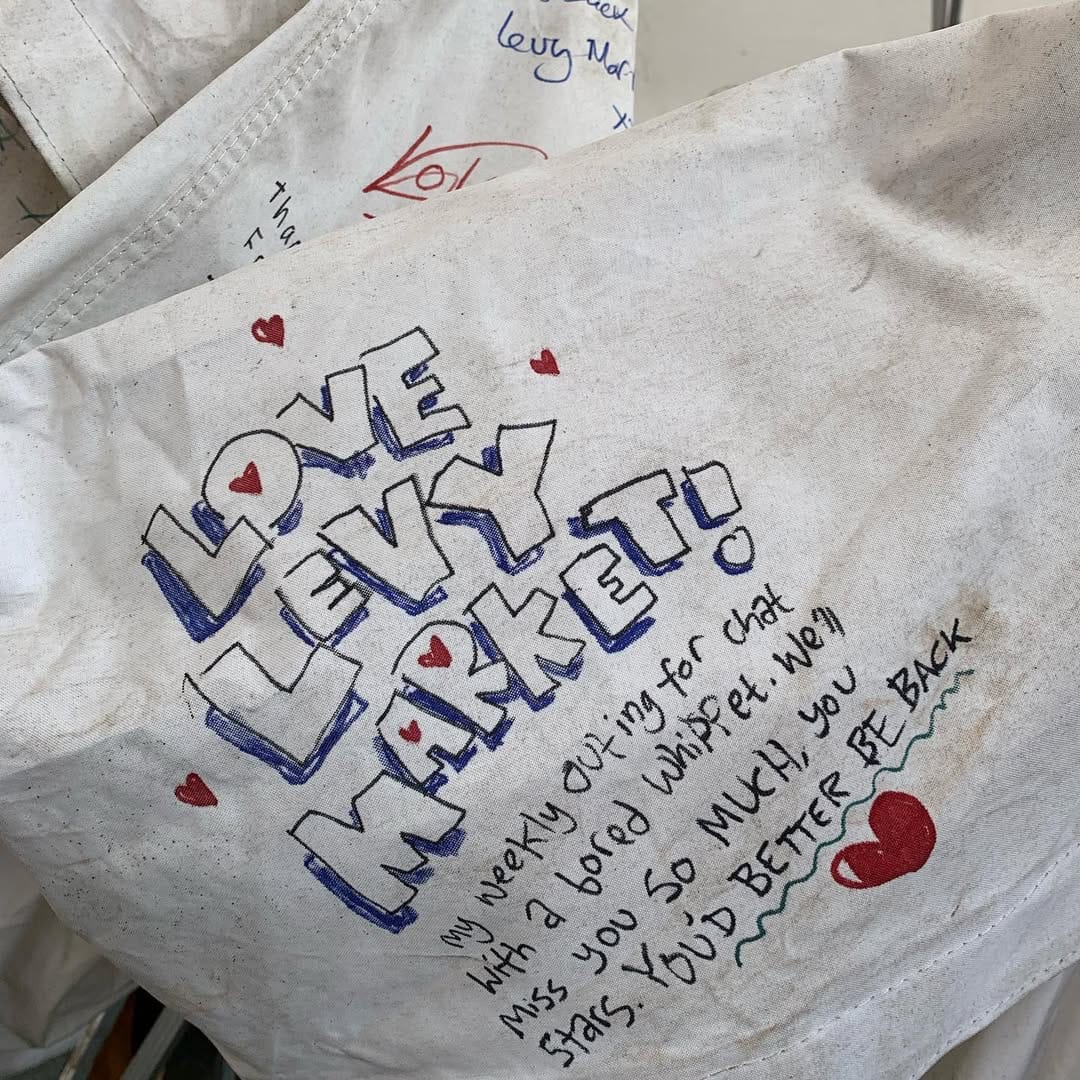 Levy Mar
LOVE
LEVY
MARKET!
My weekly outing for chat
with a bored whippet. We'll
Miss you So MUCH, you
Stars. YOU'D BETTER BE BACK